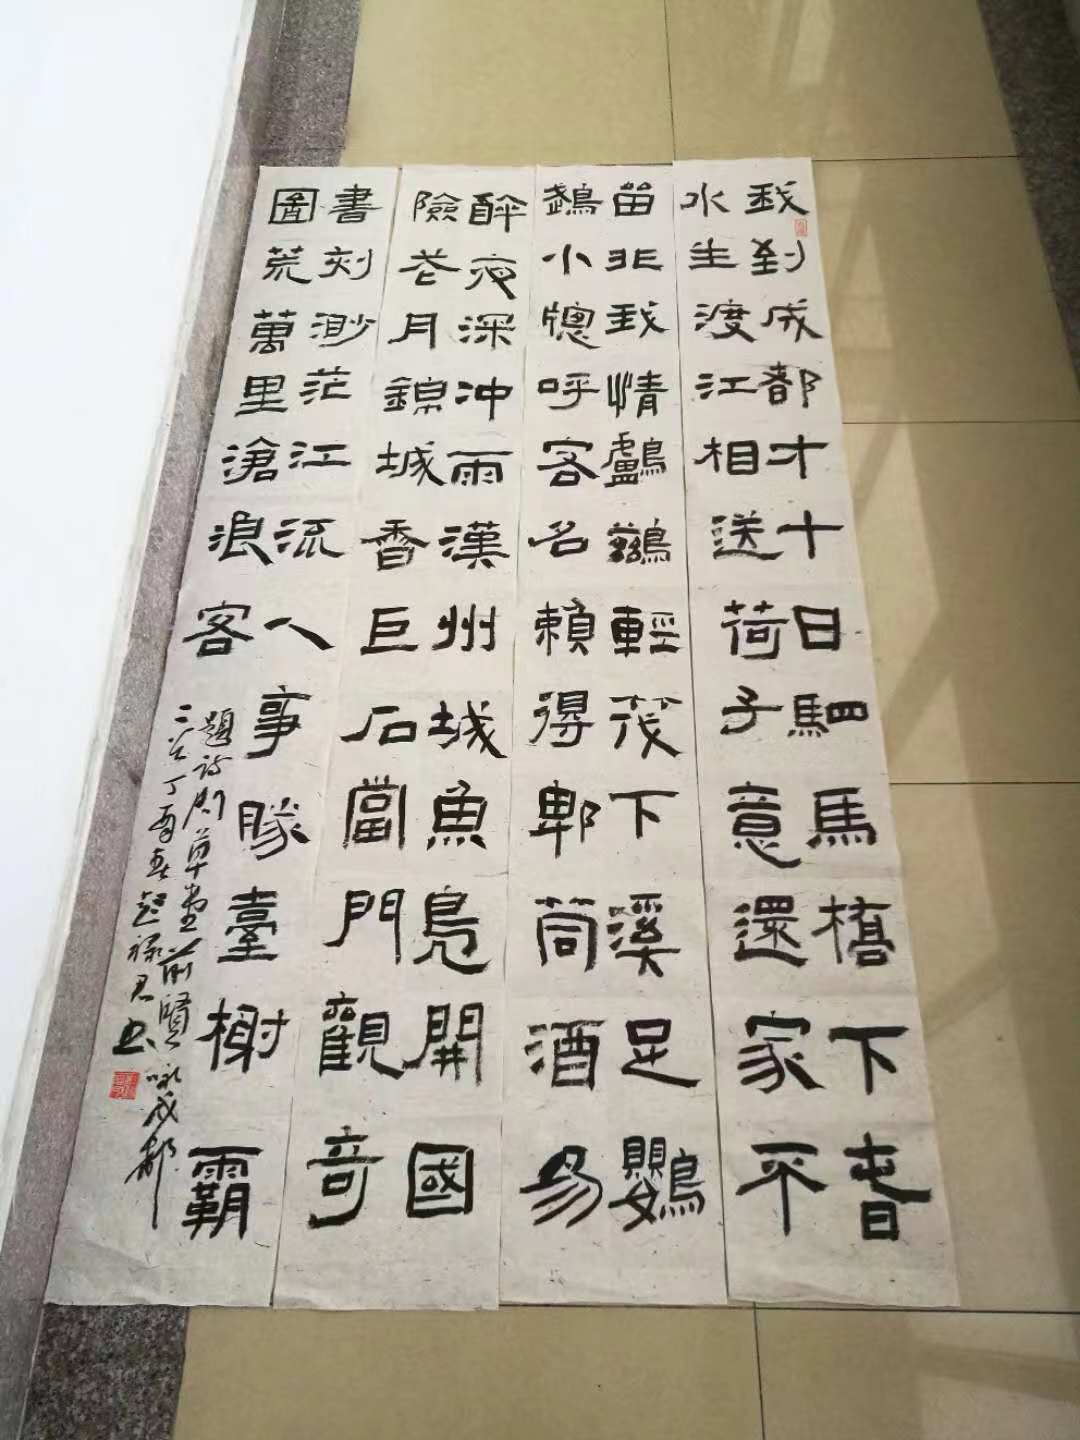 我到成都才十日駟馬橋下春
水生渡江相送荷子意還家不
留非我情鸕鷀輕筏下溪足鸚
鵡小牕呼客名賴得郫筒酒易
醉夜深冲雨漢州城魚鳧開國
險花月錦城香巨石當門觀奇
書刻渺茫江流人事勝臺榭霸
圖荒萬里滄浪客
題詩問草堂前賢咏成都
三首丁酉春